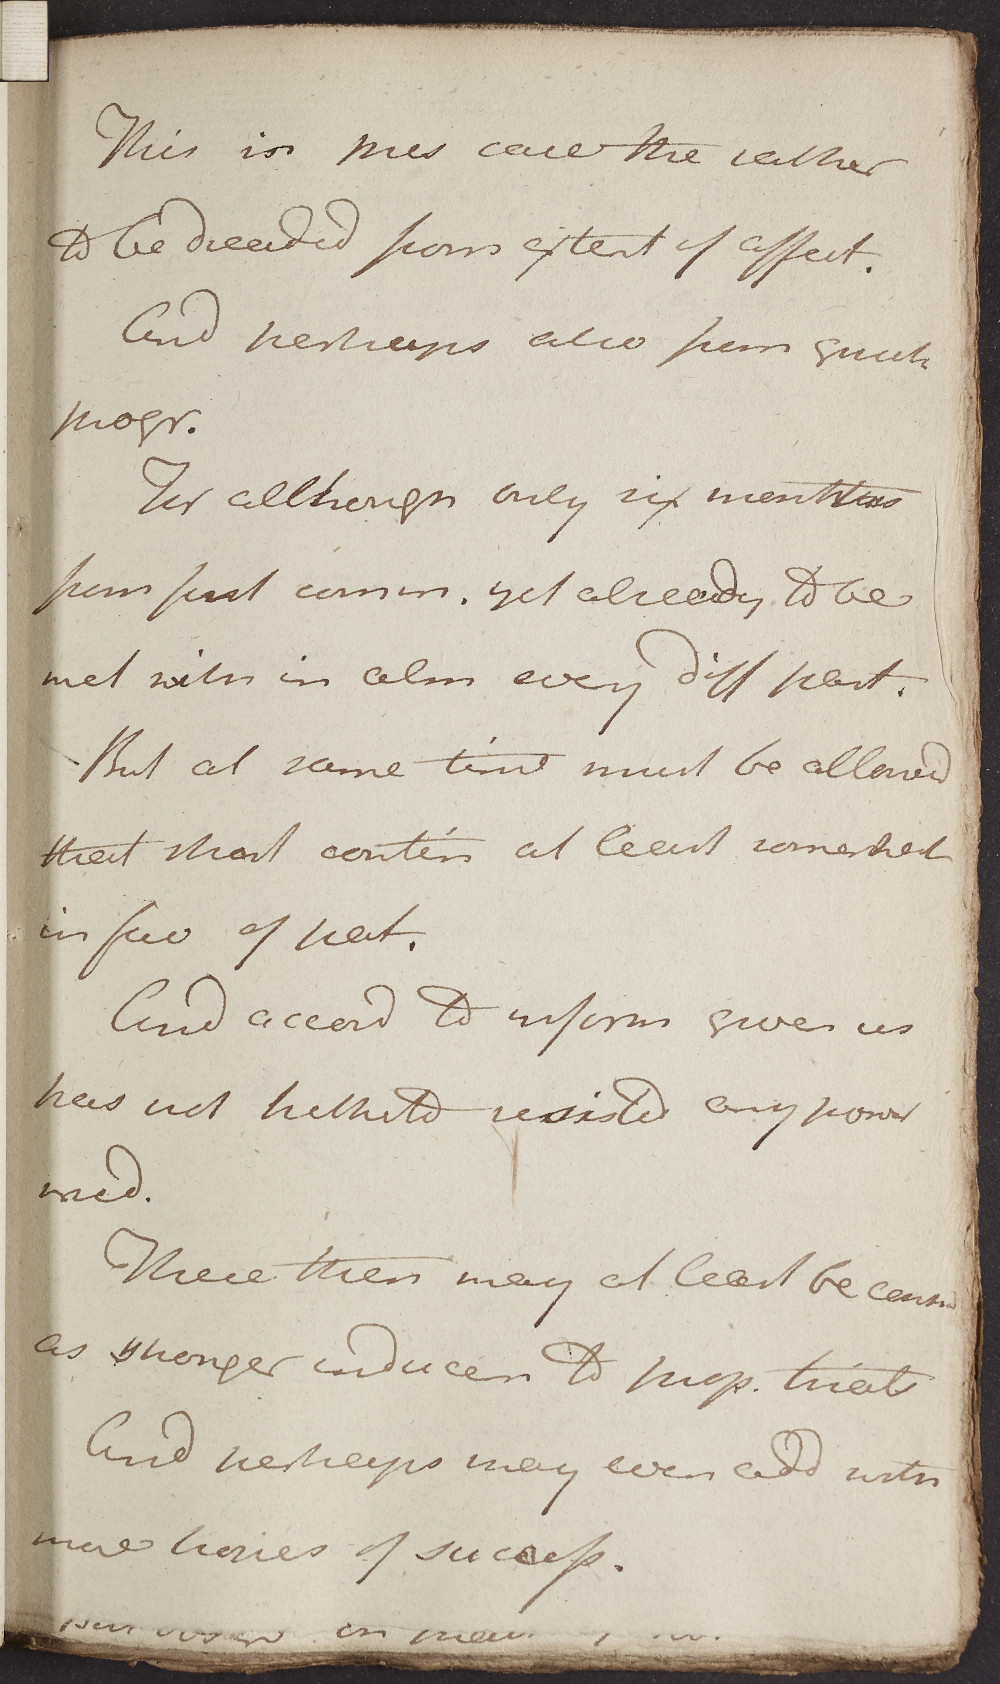 This in pres case the rather
to be dreaded from extent of affect.
And perhaps also from quick
progr.
For allthough only six months
from first comm. yet already to be
met with in alm every diff part.
But at same time must be allowed
that short contin at least somewhat
in fav of pat.
And accord to inform given us
has not hitherto resisted any power
med.
There then may at least be
as stronger inducem to prop. treat
And perhaps may even add with
more hopes of success.